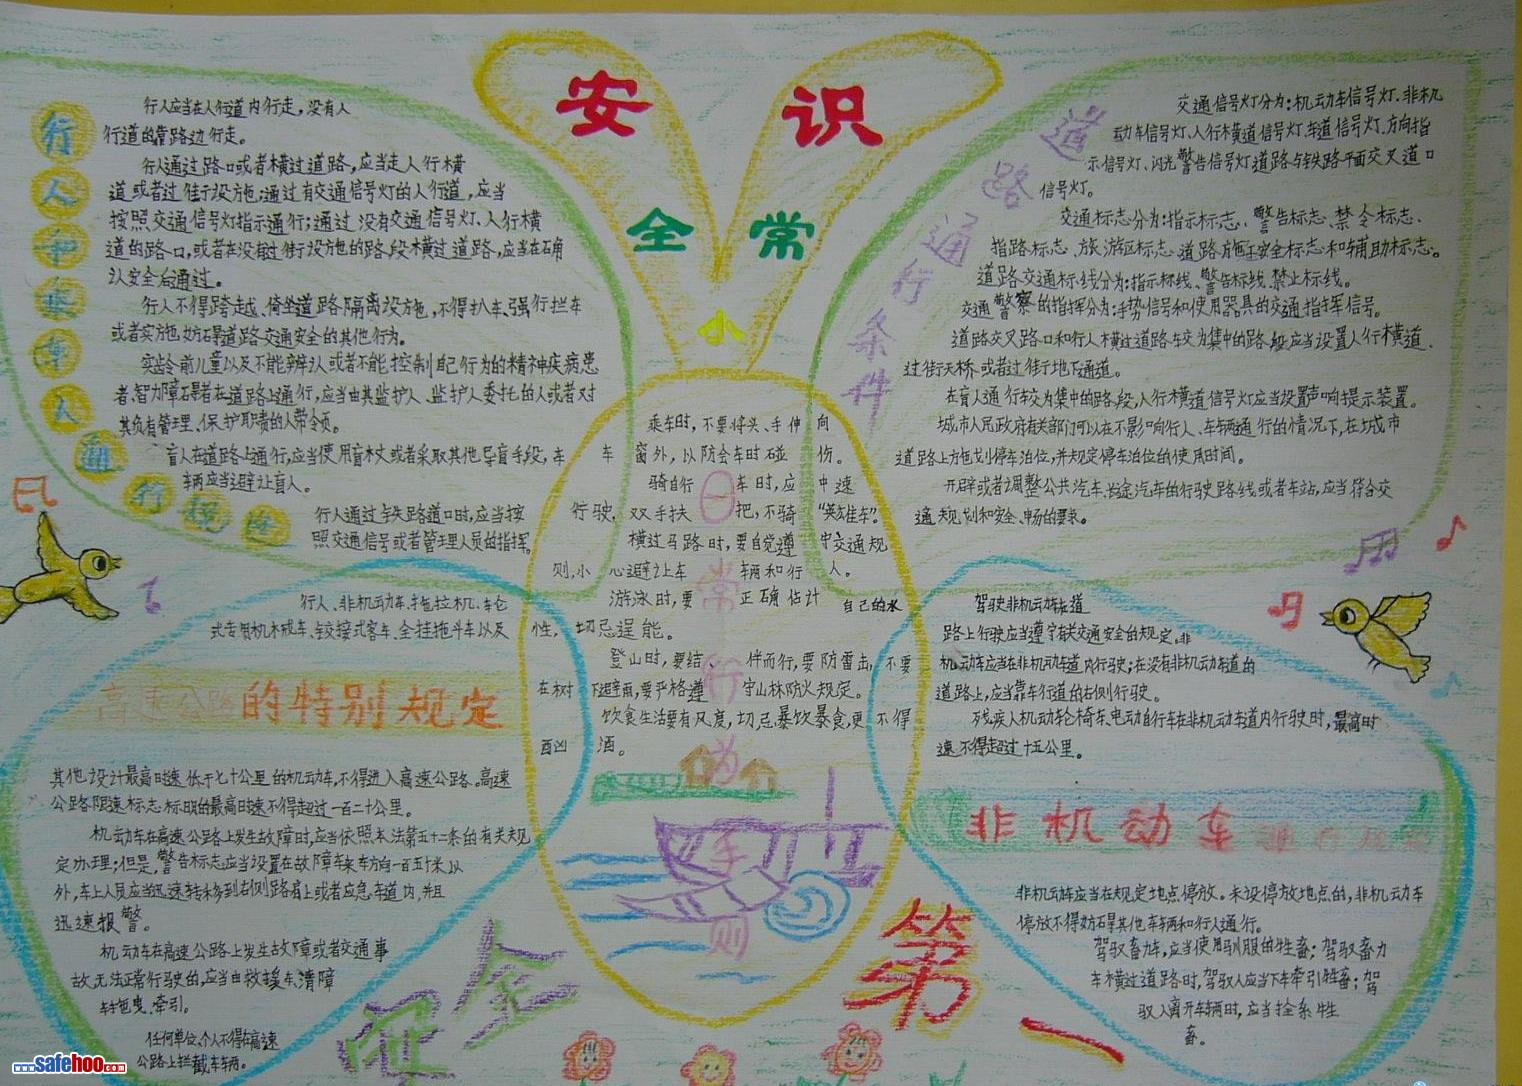 安 识
全 常
小
行人和乘车人通行规定
行人应当在人行道内行走，没有人
行道的靠路边行走。
行人通过路口或者横过道路，应当走人行横
道或者过街设施；通过有交通信号灯的人行道，应当
按照交通信号灯指示通行；通过没有交通信号灯、人行横
道的路口，或者在没有过街设施的路段横过道路，应当在确
认安全后通过。
行人不得跨越、倚坐道路隔离设施，不得扒车、强行拦车
或者实施妨碍道路交通安全的其他行为。
学龄前儿童以及不能辨认或者不能控制自己行为的精神疾病患
者、智力障碍者在道路上通行，应当由其监护人、监护人委托的人或者对
其负有管理、保护职责的人带领。
盲人在道路上通行，应当使用盲杖或者采取其他导盲手段，车
辆应当避让盲人。
行人通过铁路道口时，应当按
照交通信号或者管理人员的指挥。
道路通行条件
交通信号灯分为：机动车信号灯、非机
动车信号灯、人行横道信号灯、车道信号灯、方向指
示信号灯、闪光警告信号灯道路与铁路平面交叉道口
信号灯。
交通标志分为：指示标志、警告标志、禁令标志、
指路标志、旅游区标志、道路施工安全标志和辅助标志。
道路交通标线分为：指示标线、警告标线、禁止标线。
交通警察的指挥分为：手势信号和使用器具的交通指挥信号。
道路交叉路口和行人横过道路较为集中的路段应当设置人行横道、
过街天桥或者过街地下通道。
在盲人通行较为集中的路段，人行横道信号灯应当设置声响提示装置。
城市人民政府有关部门可以在不影响行人、车辆通行的情况下，在城市
道路上施划停车泊位，并规定停车泊位的使用时间。
开辟或者调整公共汽车、长途汽车的行驶路线或者车站，应当符合交
通规划和安全、畅的要求。
日常行为手则
乘车时，不要将头、手伸向
车窗外，以防会车时碰伤。
骑自行车时，应中速
行驶，双手扶把，不骑“英雄车”。
横过马路时，要自觉遵守交通规
则，小心避让车辆和行人。
游泳时，要正确估计自己的水
性，切忌逞能。
登山时，要结伴而行，要防雷击，不要
在树下避雨，要严格遵守山林防火规定。
饮食生活要有风度，切忌暴饮暴食，更不得
酗酒。
行人、非机动车、拖拉机、轮
式专用机械车、铰接式客车、全挂拖斗车以及
高速公路的特别规定
其他设计最高时速低于七十公里的机动车，不得进入高速公路。高速
公路限速标志标明的最高时速不得超过一百二十公里。
机动车在高速公路上发生故障时，应当依照本法第五十二条的有关规
定办理；但是，警告标志应当设置在故障车来车方向一百五十米以
外，车上人员应当迅速转移到右侧路肩上或者应急车道内，并且
迅速报警。
机动车在高速公路上发生故障或者交通事
故，无法正常行驶的，应当由救援车、清障
车拖曳、牵引。
任何单位、个人不得在高速
公路上拦截车辆。
驾驶非机动车在道
路上行驶应当遵守有关交通安全的规定。非
机动车应当在非机动车道内行驶；在没有非机动车道的
道路上，应当靠车行道的右侧行驶。
残疾人机动轮椅车、电动自行车在非机动车道内行驶时，最高时
速不得超过十五公里。
非机动车通行规定
非机动车应当在规定地点停放。未设停放地点的，非机动车
停放不得妨碍其他车辆和行人通行。
驾驭畜力车，应当使用驯服的牲畜；驾驭畜力
车横过道路时，驾驭人应当下车牵引牲畜；驾
驭人离开车辆时，应当拴系牲
畜。
安全第一
www.safehoo.com